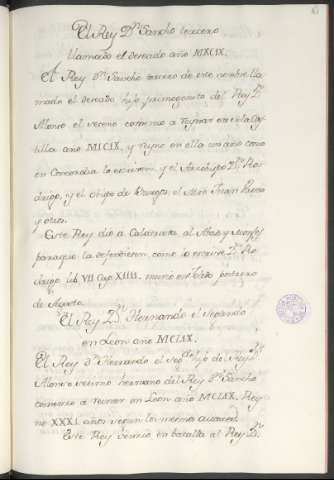 El Rey Dⁿ Sancho tercero
llamado el deseado año MCLIX.
El Rey Dⁿ Sancho tercero de este nombre lla
mado el deseado hijo primogenito del Rey Dⁿ
Alonso el comenzo a reynar en Cas
tilla año MCLIX, y reyno en ella un año como
en Concordia lo escriven, y el Arzobispo Dⁿ Ro
drigo, y el obispo de Burgos, el
y otros.
Este Rey dió a Calatrava, al Abad y Monjes
paraque la defendiesen como lo escrive Dⁿ Ro
drigo lib VII Cap XIIII. murió en Toledo postrero
de Agosto.
El Rey Dⁿ Hernando el segundo
en Leon año MCLIX.
El Rey Dⁿ Hernando el segᵈᵒ hijo del Rey Dⁿ
Alonso hermano del Rey Dⁿ Sancho
comenzo a reynar en Leon año MCLIX, Rey
no XXXI años segun los mesmos
Este Rey venció en batalla al Rey Dⁿ